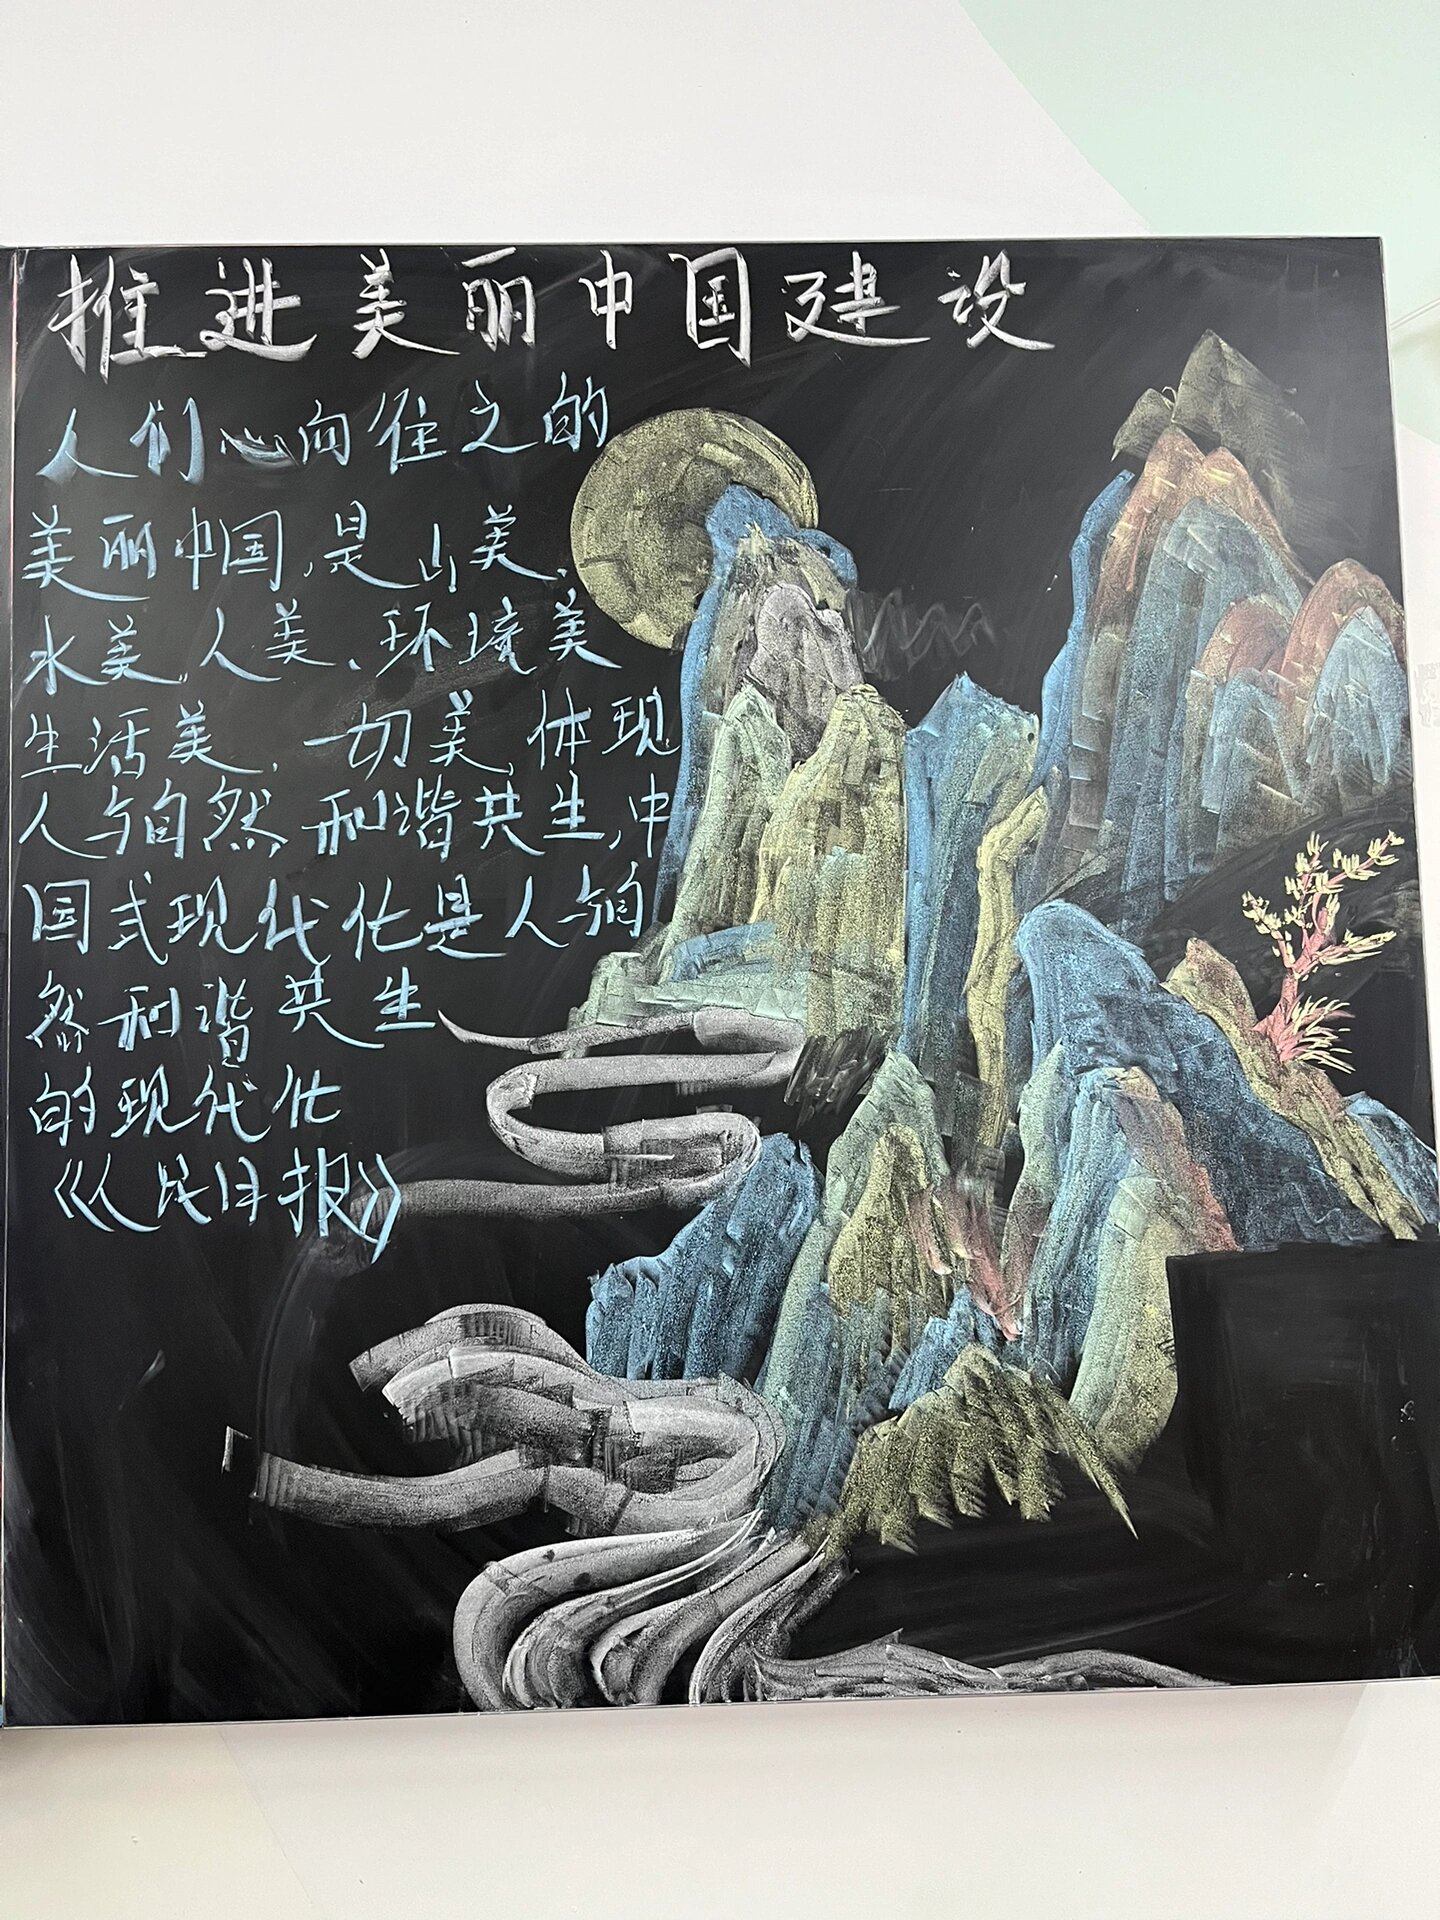 推进美丽中国建设
人们心向往之的
美丽中国,是山美、
水美、人美、环境美
生活美,一切美,体现
人与自然和谐共生,中
国式现代化是人与自
然和谐共生
的现代化
《人民日报》